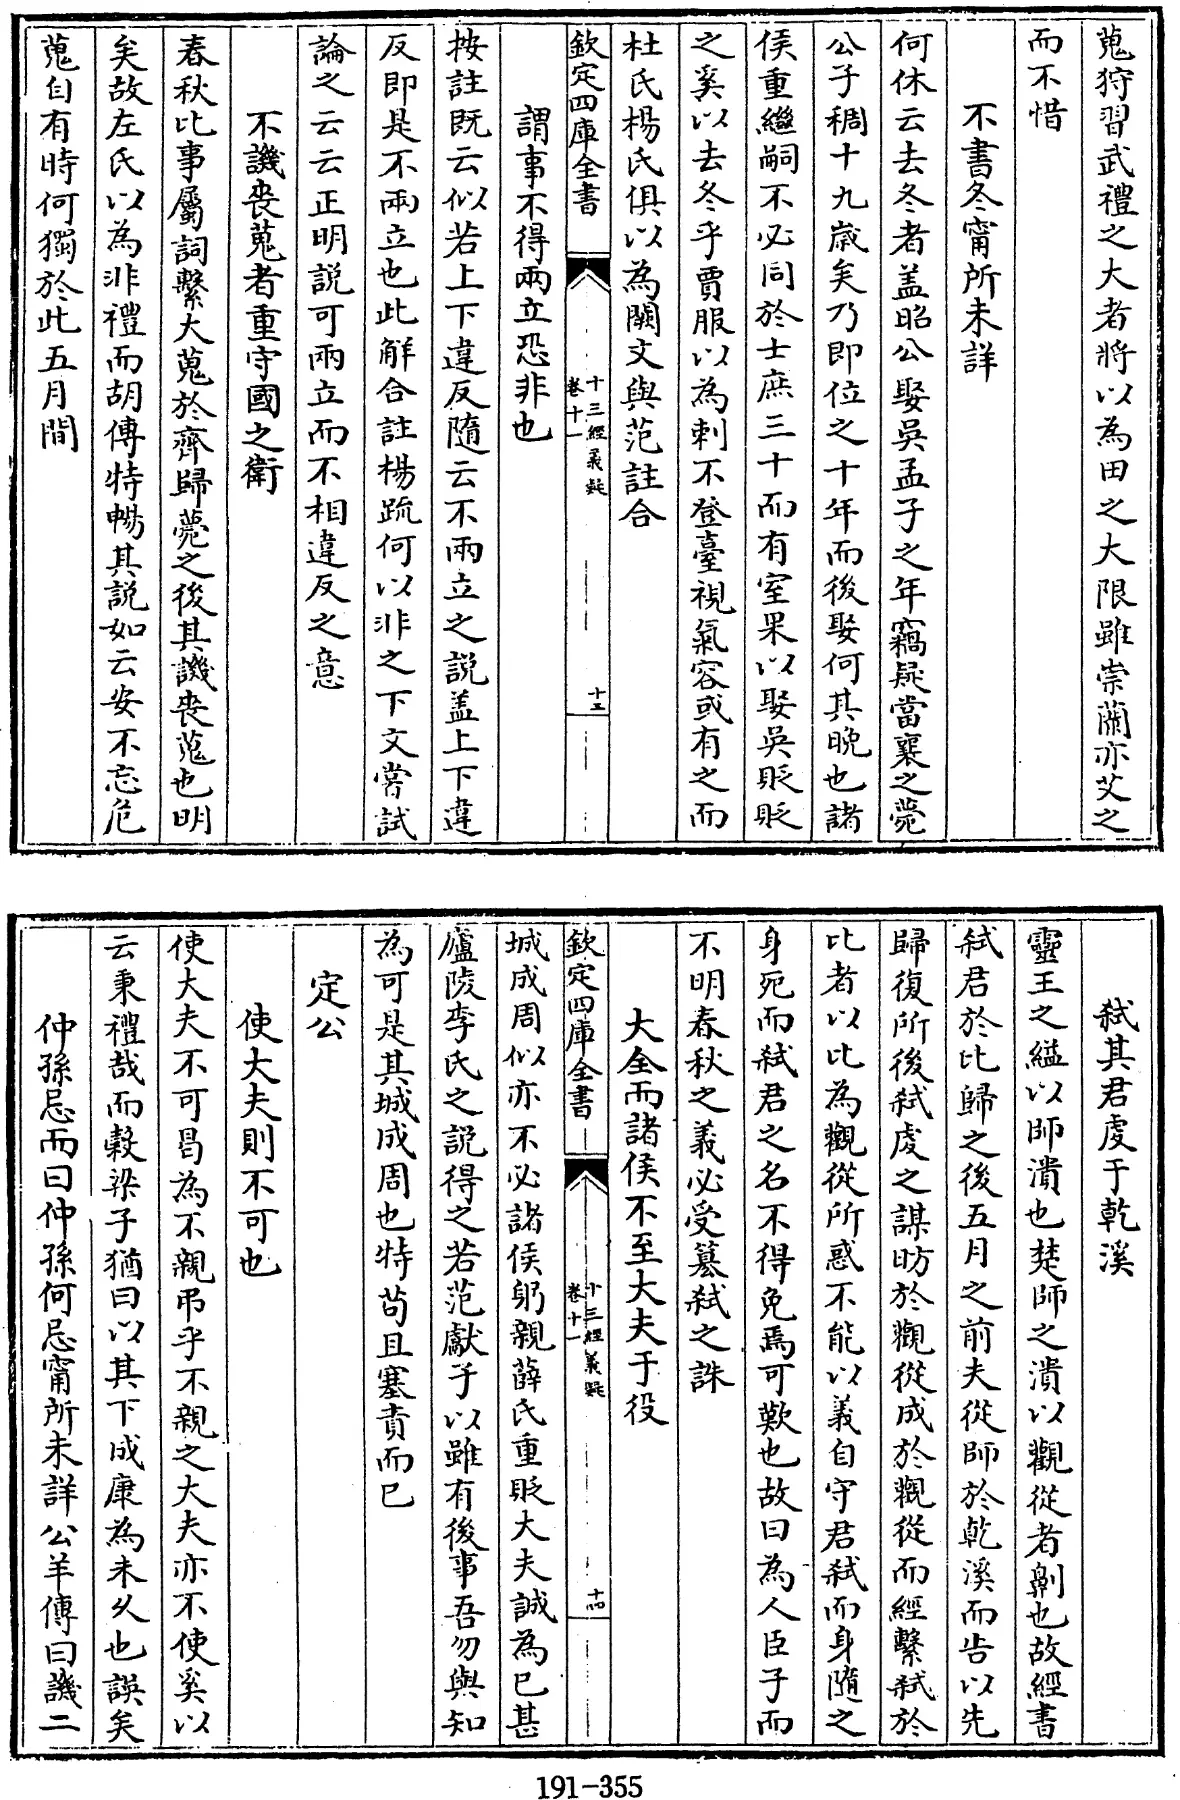 蒐狩習武禮之大者將以為田之大限雖崇蘭亦艾之
而不惜
不書冬甯所未詳
何休云去冬者盖昭公娶吳孟子之年竊疑當襄之薨
公子稠十九歲矣乃即位之十年而後娶何其晩也諸
侯重繼嗣不必同於士庶三十而有室果以娶吳貶貶
之奚以去冬乎賈服以為刺不登臺視氣容或有之而
杜氏楊氏俱以為闕文與范註合
欽定四庫全書
十三經義疑
卷十一
十三
謂事不得兩立恐非也
按註既云似若上下違反隨云不兩立之説盖上下違
反即是不兩立也此解合註楊疏何以非之下文嘗試
論之云云正明説可兩立而不相違反之意
不譏喪蒐者重守國之衛
春秋比事屬詞繫大蒐於齊歸薨之後其譏喪蒐也明
矣故左氏以為非禮而胡傳特暢其説如云安不忘危
蒐自有時何獨於此五月間
弑其君虔于乾溪
靈王之縊以師潰也楚師之潰以觀從者劓也故經書
弑君於比歸之後五月之前夫從師於乾溪而告以先
歸復所後弑虔之謀昉於觀從成於觀從而經繫弑於
比者以比為觀從所惑不能以義自守君弑而身隨之
身死而弑君之名不得免焉可歎也故曰為人臣子而
不明春秋之義必受簒弑之誅
大全而諸侯不至大夫于役
欽定四庫全書
十三經義疑
卷十一
十四
城成周似亦不必諸侯躬親薛氏重貶大夫誠為已甚
廬陵李氏之説得之若范獻子以雖有後事吾勿與知
為可是其城成周也特苟且塞責而已
定公
使大夫則不可也
使大夫不可曷為不親弔乎不親之大夫亦不使奚以
云秉禮哉而穀梁子猶曰以其下成康為未久也誤矣
仲孫忌而曰仲孫何忌甯所未詳公羊傳曰譏二
191-355